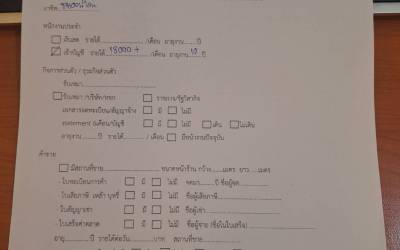 อาชีพ
พนักงานประจำ
เงินสด รายได้ ............ /เดือน อายุงาน ...... ปี
เข้าบัญชี รายได้ 18000+ /เดือน อายุงาน 10 ปี
กิจการส่วนตัว / ธุรกิจส่วนตัว
รับเหมา............
รับเหมา/บริษัท/หจก ราชการ/รัฐวิสาหกิจ
เอกสารจดทะเบียน/สัญญาจ้าง มี ไม่มี
statement (เดือน/บัญชี มี ไม่มี เดิน ไม่เดิน
อายุงาน......ปี รายได้........ / เดือน มีหน้างานปัจจุบัน
ค้าขาย
มีสถานที่ขาย .............. ขนาดหน้าร้าน กว้าง......เมตร ยาว ......เมตร
- ใบทะเบียนการค้า มี ไม่มี จดมา.......ปี ชื่อผู้จด............
- ใบเสียภาษี เหล้า บุหรี่ มี ไม่มี ชื่อผู้เสียภาษี............
- ใบสัญญาเช่า มี ไม่มี ชื่อผู้เช่า............
- ใบเสร็จค่าตลาด มี ไม่มี ชื่อผู้จ่าย (ชื่อในใบเสร็จ)............
อายุ.......ปี รายได้ต่อวัน...........บาท สถานที่ขาย............